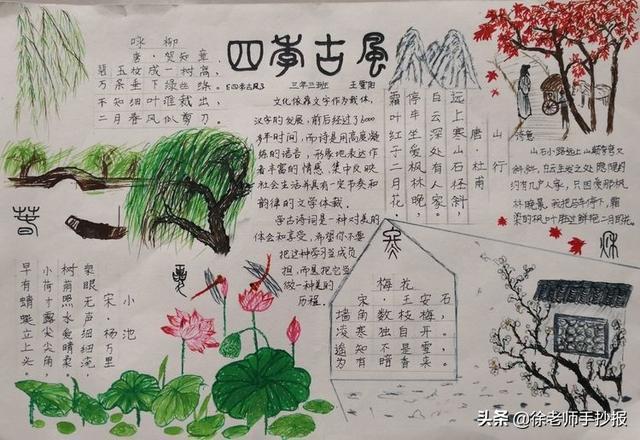 四季古风
《四季古风》 三年三班
咏柳
唐·贺知章
碧玉妆成一树高,
万条垂下绿丝绦。
不知细叶谁裁出,
二月春风似剪刀。
文化依靠文字作为载体,
汉字的发展,前后经过了6000
多年时间,而诗是用高度凝
练的语言,形象地表达作
者丰富的情感,集中反映
社会生活并具有一定节奏和
韵律的文学体裁。
学古诗词是一种对美的
体会和享受,希望你不要
把这种学习当成负
担,而是把它当
做一种美的
历程。
山行
唐·杜甫
远上寒山石径斜,
白云深处有人家。
停车坐爱枫林晚,
霜叶红于二月花。
诗意
山石小路远上山巅弯弯又
斜斜,白云生处之处隐隐约
约有几户人家,只因爱那枫
林晚景,我把马车停下,霜
染的枫叶胜过鲜艳二月的花。
春
夏
秋
冬
小池
宋·杨万里
泉眼无声细细流,
树荫照水爱晴柔,
小荷才露尖尖角,
早有蜻蜓立上头。
梅花
宋·王安石
墙角数枝梅,
凌寒独自开。
遥知不是雪,
为有暗香来。
头条 @徐老师手抄报